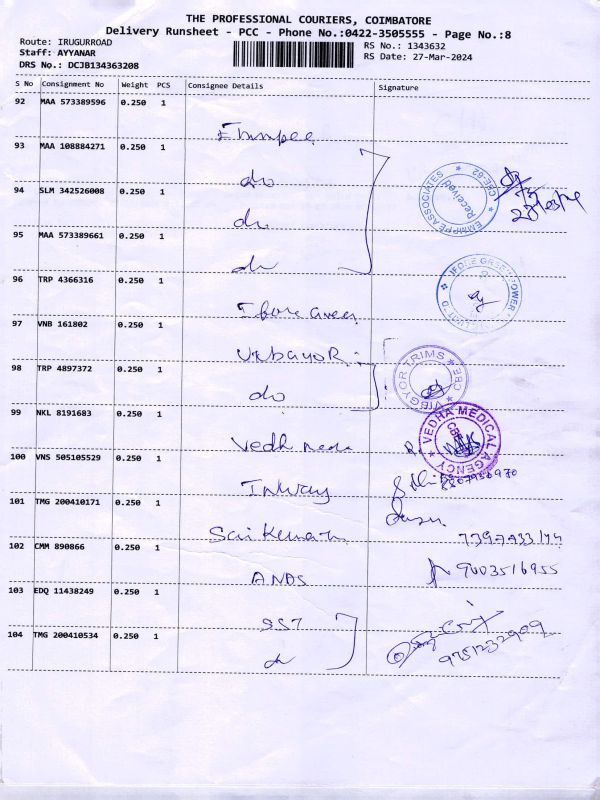 THE PROFESSIONAL COURIERS, COIMBATORE
Delivery Runsheet - PCC - Phone No.:0422-3505555 - Page No.:8
Route: IRUGURROAD
RS No.: 1343632
Staff: AYYANAR
RS Date: 27-Mar-2024
DRS No.: DCJB134363208
S No Consignment No Weight PCS Consignee Details Signature
92 MAA 573389596 0.250 1
93 MAA 108884271 0.250 1
do
EMMPEE ASSOCIATES CBE-62
Received
94 SLM 342526008 0.250 1
do
95 MAA 573389661 0.250 1
do
96 TRP 4366316 0.250 1
97 VNB 161802 0.250 1
VIBGYOR
98 TRP 4897372 0.250 1
do
VIBGYOR TRIMS CBE
99 NKL 8191683 0.250 1
VEDHA MEDICAL AGENCY
100 VNS 505105529 0.250 1
101 TMG 200410171 0.250 1
Sai Kumar
102 CMM 890866 0.250 1
ANDS
9003516955
103 EDQ 11438249 0.250 1
SST
104 TMG 200410534 0.250 1
9751232909